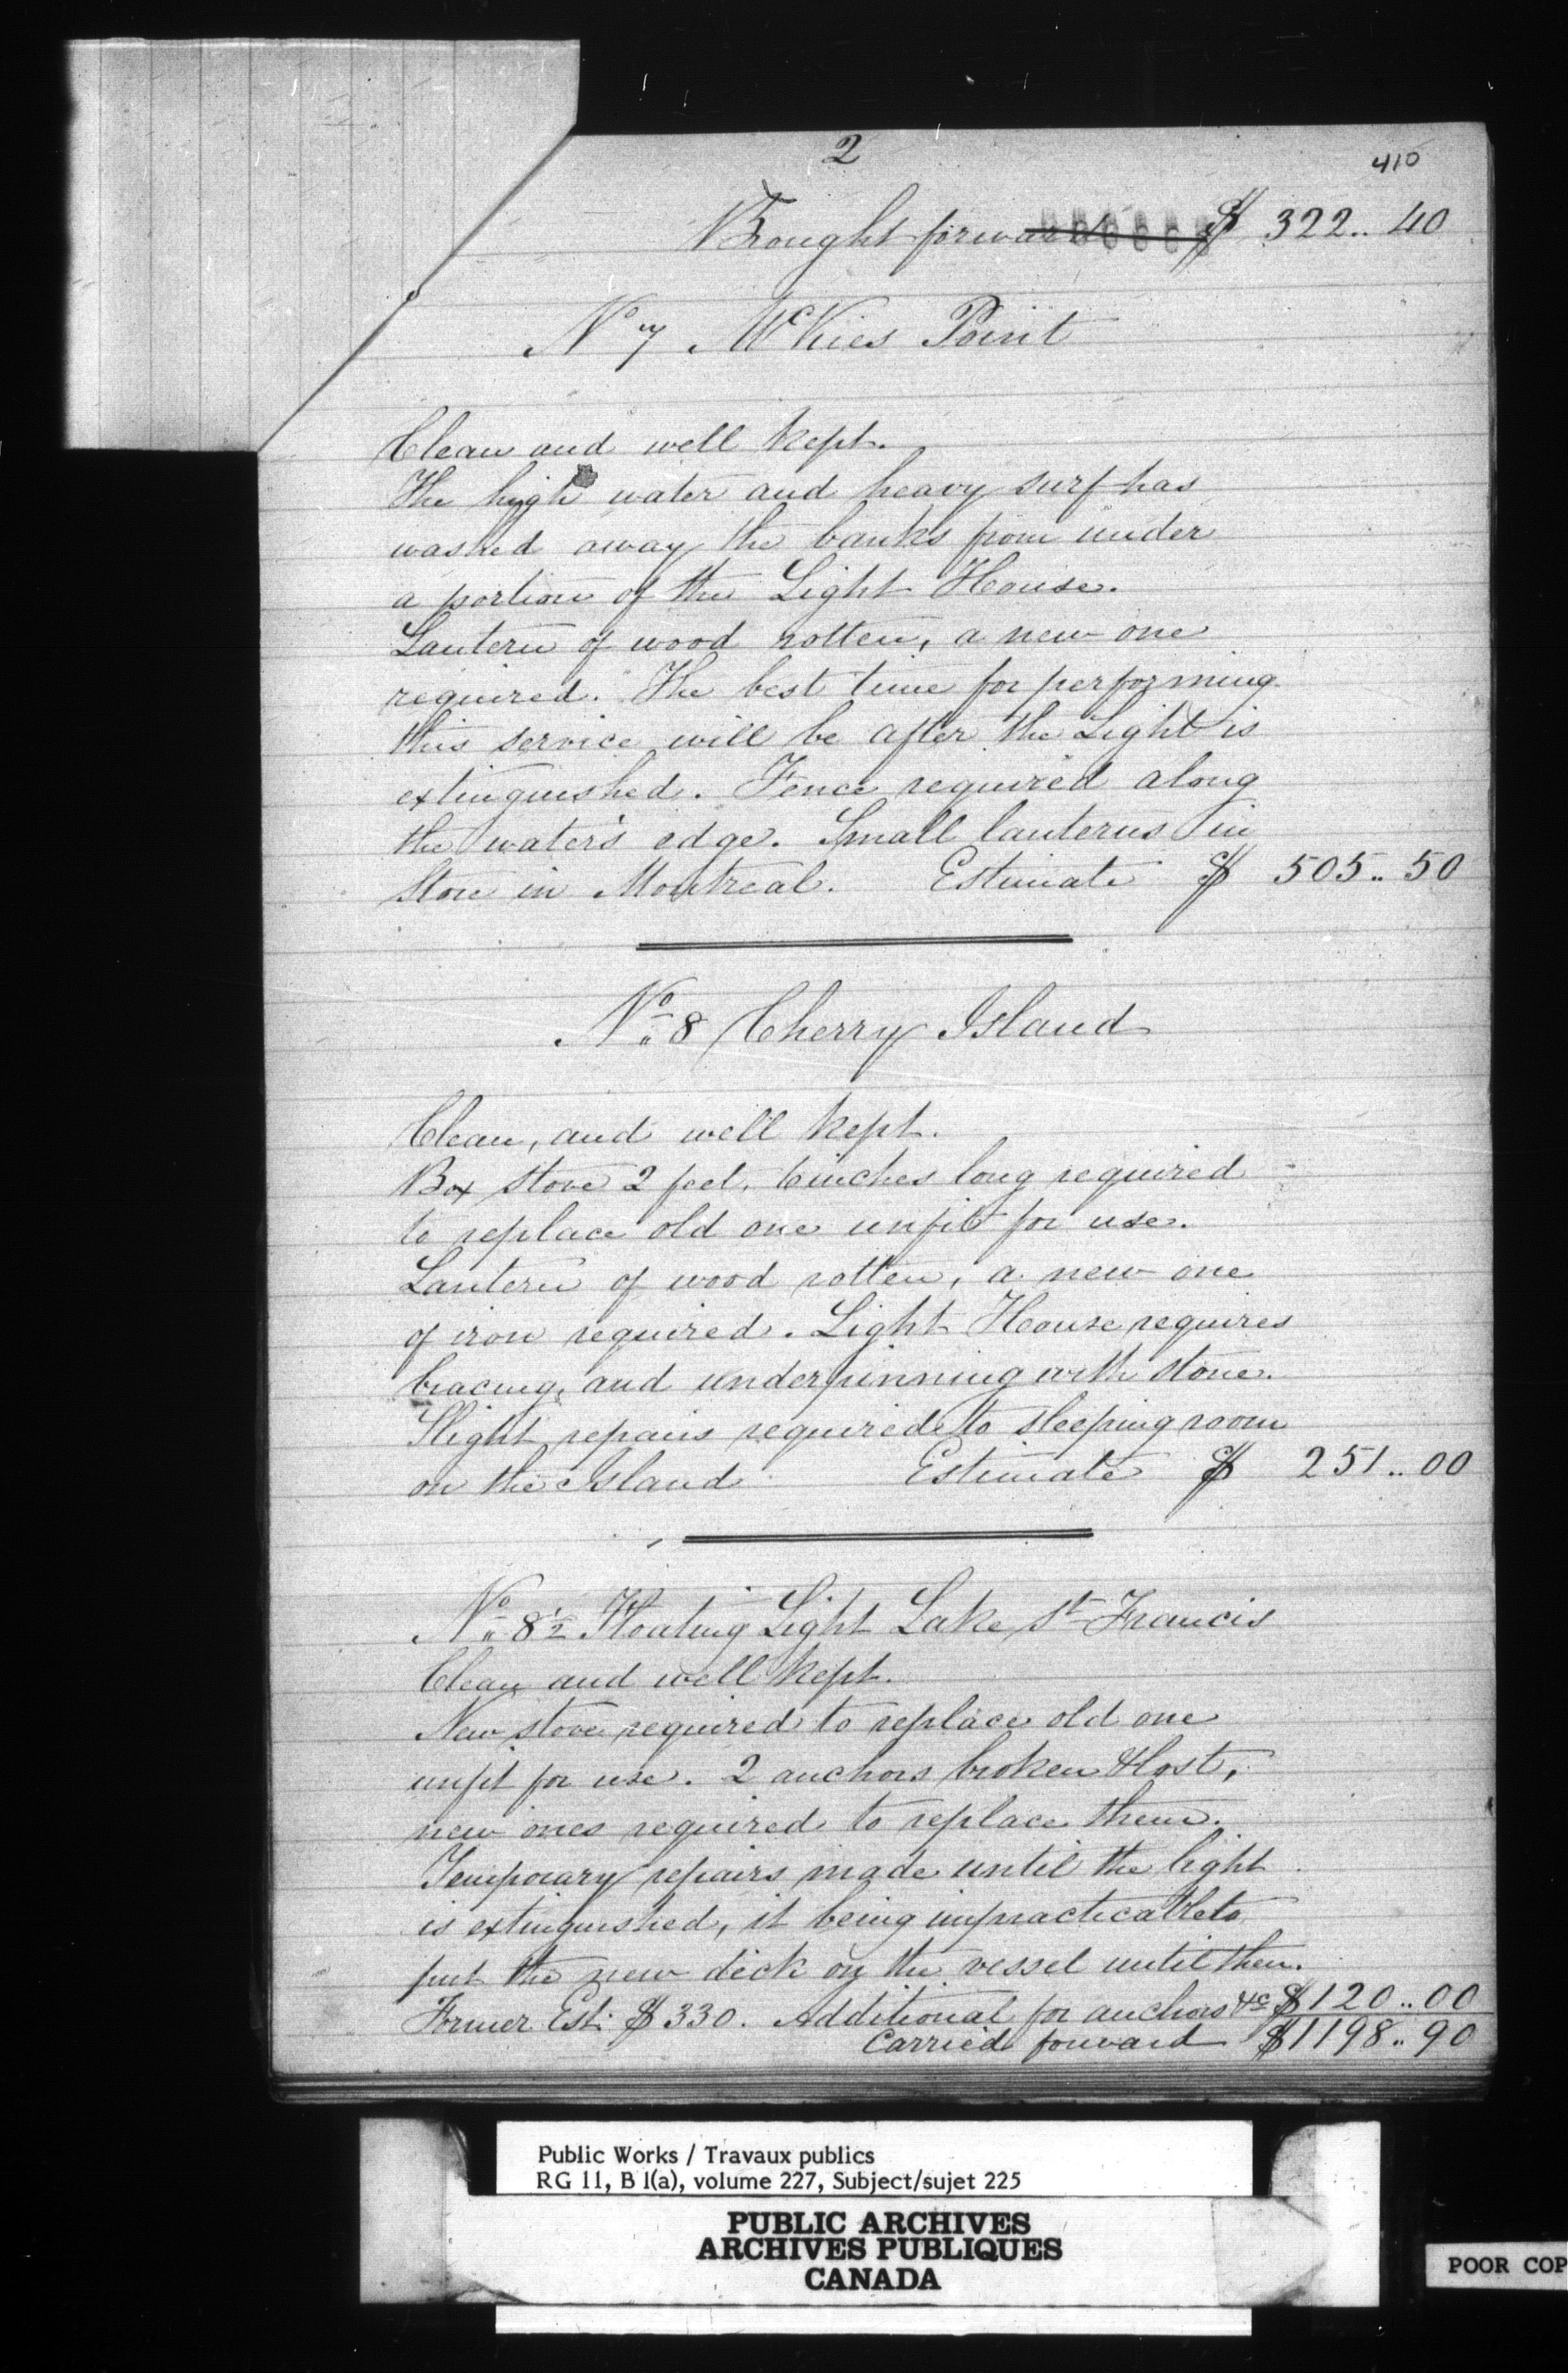 2
410
Brought forward $ 322.. 40
No 7 McKies Point
Clean and well kept.
The high water and heavy surf has
washed away the banks from under
a portion of the Light House.
Lantern of wood rotten, a new one
required. The best time for performing
this service will be after the Light is
extinguished. Fence required along
the water's edge. Small lanterns in
Store in Montreal. Estimate $ 505.. 50
No 8 Cherry Island
Clean, and well kept.
Box stove 2 feet, 6 inches long required
to replace old one unfit for use.
Lantern of wood rotten, a new one
of iron required. Light House requires
bracing, and underpinning with stone.
Slight repairs required to sleeping room
on the Island Estimate $ 251.. 00
No 8 1/2 Floating Light Lake St Francis
Clean and well kept.
New stove required to replace old one
unfit for use. 2 anchors broken & lost,
new ones required to replace them.
Temporary repairs made until the light
is extinguished, it being impracticable to
put the new deck on the vessel until then.
Former Est: $ 330. Additional for anchors &c $ 120.. 00
Carried forward $ 1198.. 90
Public Works / Travaux publics
RG 11, B 1(a), volume 227, Subject/sujet 225
PUBLIC ARCHIVES
ARCHIVES PUBLIQUES
CANADA
POOR COP